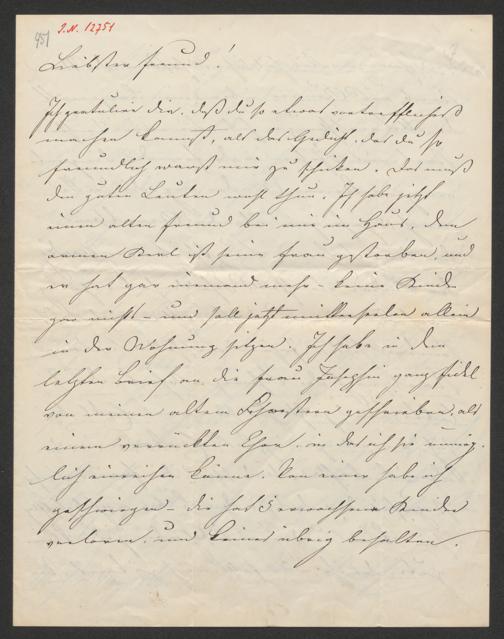 451
J.N. 12751
Liebster Freund!
Ich gratulire dir, daß du so etwas vortreffliches
machen kannst, als das Gedicht, das du so
freundlich warst mir zu schicken. Das muß
den guten Leuten wohl thun. Ich habe jetzt
einen alten Freund bei mir im Haus, dem
armen Kerl ist seine Frau gestorben, und
er hat gar niemand mehr – keine Kinder
gar nichts – und soll jetzt mutterseelen allein
in der Wohnung sitzen. Ich habe in dem
letzten Brief an die Frau Josephin ganz fidel
von meinen alten Schwestern geschrieben, als
einem verrückten, in das ich sie
lich einreihen könne. Von einer habe ich
geschwiegen – die hat 5 erwachsene Kinder
verloren, und keines übrig behalten.